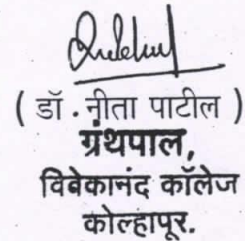 ( डॉ . नीता पाटील )
ग्रंथपाल,
विवेकानंद कॉलेज
कोल्हापूर.